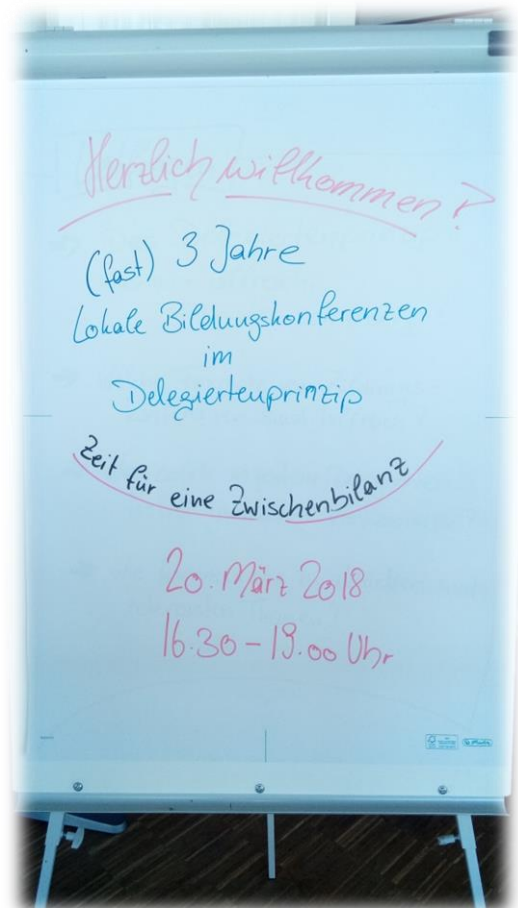 Herzlich willkommen!
(fast) 3 Jahre
Lokale Bildungskonferenzen
im
Delegiertenprinzip
Zeit für eine Zwischenbilanz
20. März 2018
16.30 – 19.00 Uhr